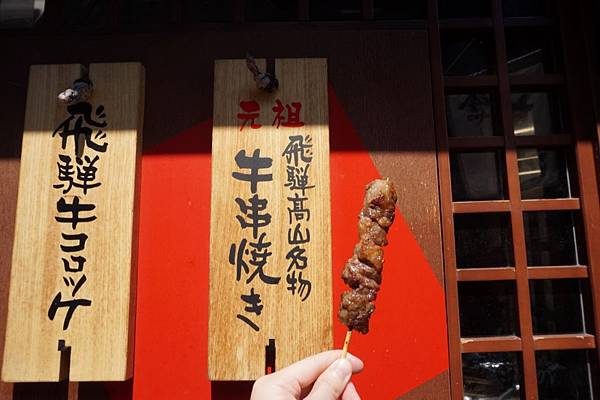 飛騨牛コロッケ
元祖
飛騨高山名物
牛串焼き